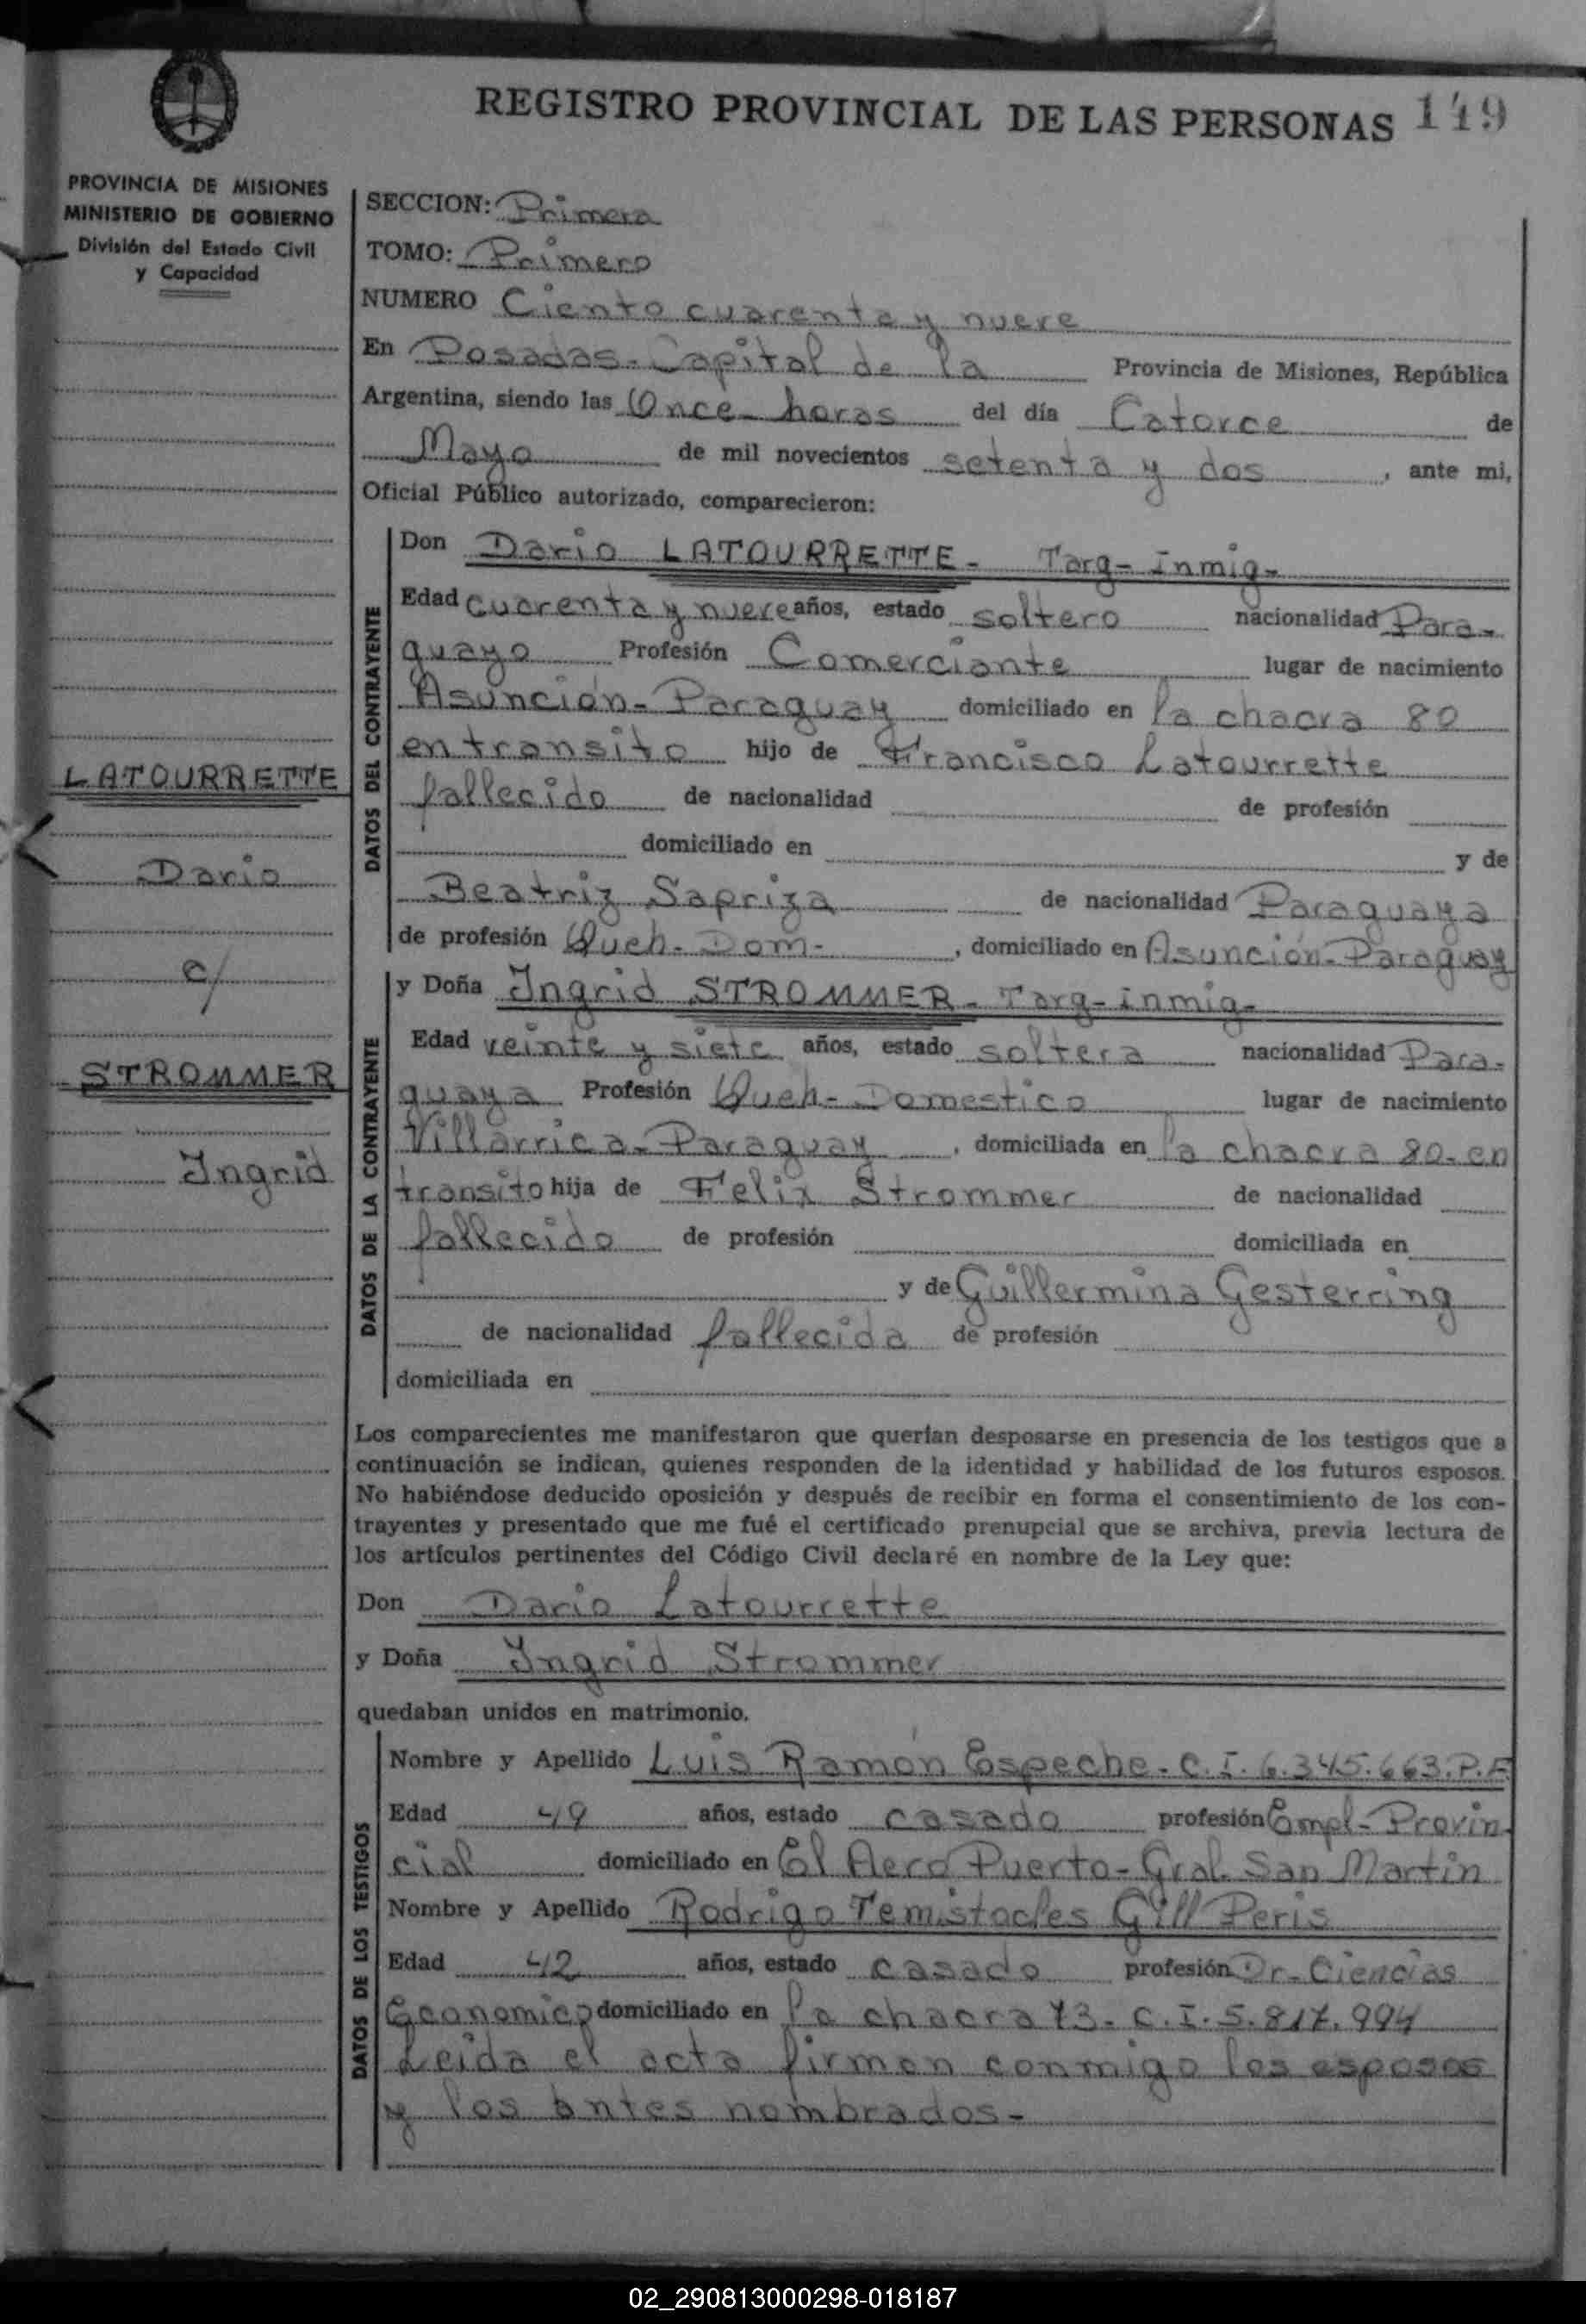 REGISTRO PROVINCIAL DE LAS PERSONAS 149
PROVINCIA DE MISIONES
MINISTERIO DE GOBIERNO
División del Estado Civil
y Capacidad
LATOURRETTE
Dario
c/
STROMMER
Ingrid
SECCION: Primera
TOMO: Primero
NUMERO Ciento cuarenta y nueve
En Posadas - Capital de la Provincia de Misiones, República
Argentina, siendo las Once horas del día Catorce de
Mayo de mil novecientos setenta y dos, ante mi,
Oficial Público autorizado, comparecieron:
DATOS DEL CONTRAYENTE
Don Dario LATOURRETTE - Targ - Inmig -
Edad cuarenta y nueve años, estado soltero nacionalidad Para-
guayo Profesión Comerciante lugar de nacimiento
Asunción - Paraguay domiciliado en la chacra 80
en transito hijo de Francisco Latourrette
fallecido de nacionalidad de profesión
domiciliado en y de
Beatriz Sapriza de nacionalidad Paraguaya
de profesión Queh - Dom -, domiciliado en Asunción - Paraguay
DATOS DE LA CONTRAYENTE
y Doña Ingrid STROMMER - Targ - inmig -
Edad veinte y siete años, estado soltera nacionalidad Para-
guaya Profesión Queh - Domestico lugar de nacimiento
Villarrica - Paraguay, domiciliada en la chacra 80 - en
transito hija de Felix Strommer de nacionalidad
fallecido de profesión domiciliada en
y de Guillermina Gesterring
de nacionalidad fallecida de profesión
domiciliada en
Los comparecientes me manifestaron que querían desposarse en presencia de los testigos que a
continuación se indican, quienes responden de la identidad y habilidad de los futuros esposos.
No habiéndose deducido oposición y después de recibir en forma el consentimiento de los con-
trayentes y presentado que me fué el certificado prenupcial que se archiva, previa lectura de
los artículos pertinentes del Código Civil declaré en nombre de la Ley que:
Don Dario Latourrette
y Doña Ingrid Strommer
quedaban unidos en matrimonio.
DATOS DE LOS TESTIGOS
Nombre y Apellido Luis Ramón Espeche - C. I. 6.345.663. P. F
Edad 49 años, estado casado profesión Empl - Provin
cial domiciliado en El Aero Puerto - Gral. San Martin
Nombre y Apellido Rodrigo Temistocles Gill Peris
Edad 42 años, estado casado profesión Dr - Ciencias
Economica domiciliado en la chacra 73 - C. I. 5.817.994
Leida el acta firman conmigo los esposos
y los antes nombrados -
02_290813000298-018187